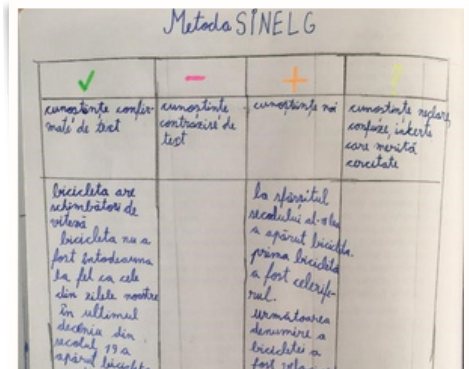 Metoda SINELG
✓
-
+
?
cunoștințe confir-
mate de text
cunoștințe
contrazise de
text
cunoștințe noi
cunoștințe neclare,
confuze, incerte
care merită
cercetate
bicicleta are
schimbători de
viteză
bicicleta nu a
fost întodeauna
la fel ca cele
din zilele noastre
în ultimul
deceniu din
secolul 19 a
apărut bicicleta
La sfârșitul
secolului al
a apărut bicicleta.
prima bicicleta
a fost celerife-
rul.
următoarea
denumire a
bicicletei a
fost